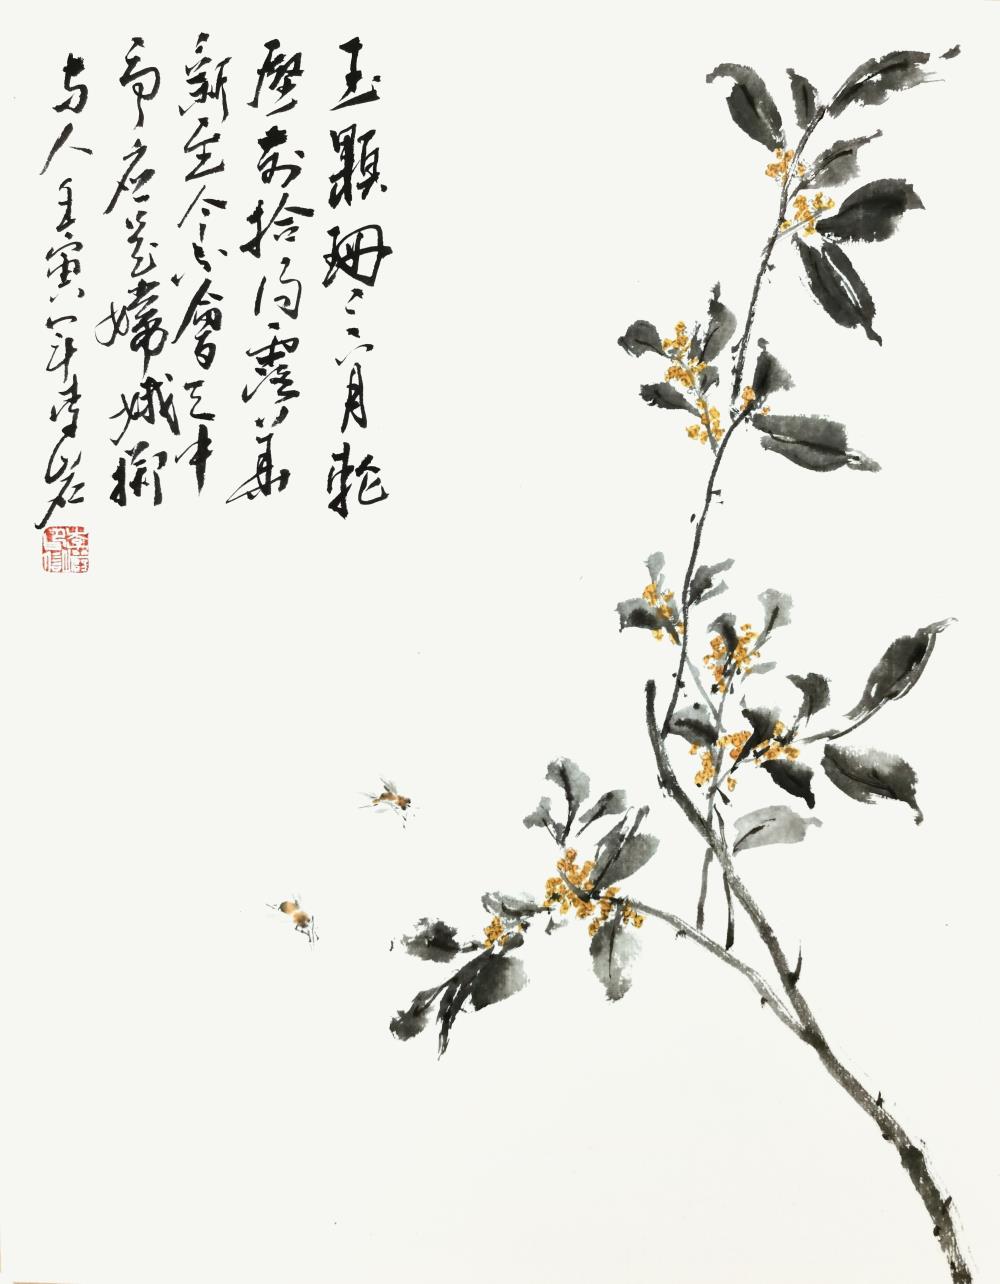 玉顆珊〻下月輪
殿前拾得露華
新至今不會天中
事应是嫦娥擲
与人 壬寅年李岩